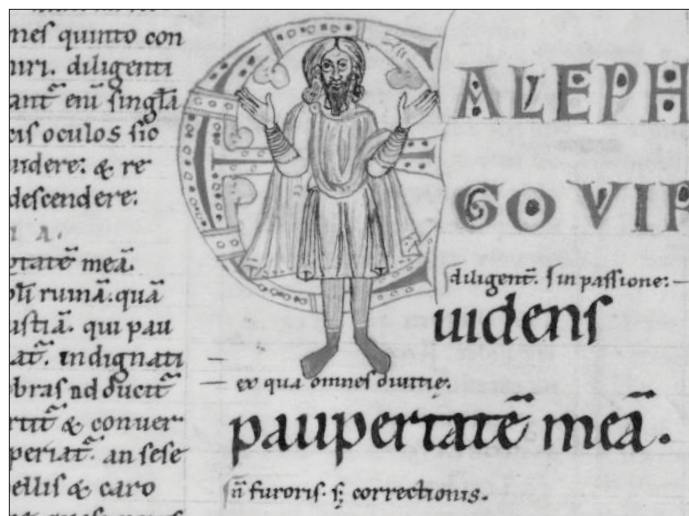 nes quinto con
iuri. diligenti
ant̄ eni̅ singl̄a
cis oculos sio
uidere: & re
descendere:
I A.
ertate̅ mea̅.
ruina̅. qua̅
astia̅. qui pau
at̄. indignati
obras nd ducit̄
rtit̄ & conuer
periat̄. an sese
ellis & caro
ALEPH
EGO VIR
diligent̄. s in passione:
uidens
ex qua omnes diuitie.
paupertate̅ mea̅.
n̅ furoris. s; correctionis.